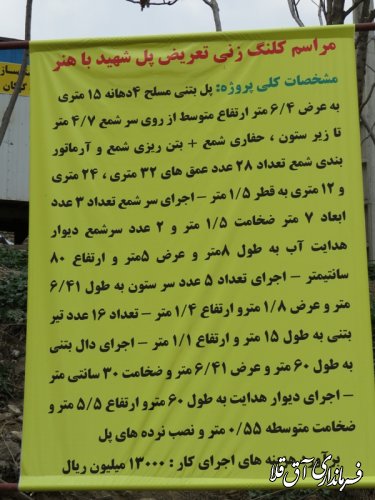 مراسم کلنگ زنی تعریض پل شهید با هنر
مشخصات کلی پروژه: پل بتنی مسلح ۴دهانه ۱۵ متری
به عرض ۶/۴ متر ارتفاع متوسط از روی سر شمع ۴/۷ متر
تا زیر ستون ، حفاری شمع + بتن ریزی شمع و آرماتور
بندی شمع تعداد ۲۸ عدد عمق های ۳۲ متری ، ۲۴ متری
و ۱۲ متری به قطر ۱/۵ متر – اجرای سر شمع تعداد ۳ عدد
ابعاد ۷ متر ضخامت ۱/۵ متر و ۲ عدد سرشمع دیوار
هدایت آب به طول ۸متر و عرض ۵متر و ارتفاع ۸۰
سانتیمتر – اجرای تعداد ۵ عدد سر ستون به طول ۶/۴۱
متر و عرض ۱/۸ مترو ارتفاع ۱/۴ متر – تعداد ۱۶ عدد تیر
بتنی به طول ۱۵ متر و ارتفاع ۱/۱ متر – اجرای دال بتنی
به طول ۶۰ متر و عرض ۶/۴۱ متر و ضخامت ۳۰ سانتی متر
– اجرای دیوار هدایت به طول ۶۰ مترو ارتفاع ۵/۵ متر و
ضخامت متوسطه ۰/۵۵ متر و نصب نرده های پل
های اجرای کار : ۱۳۰۰۰ میلیون ریال
فرمانداری آق قلا